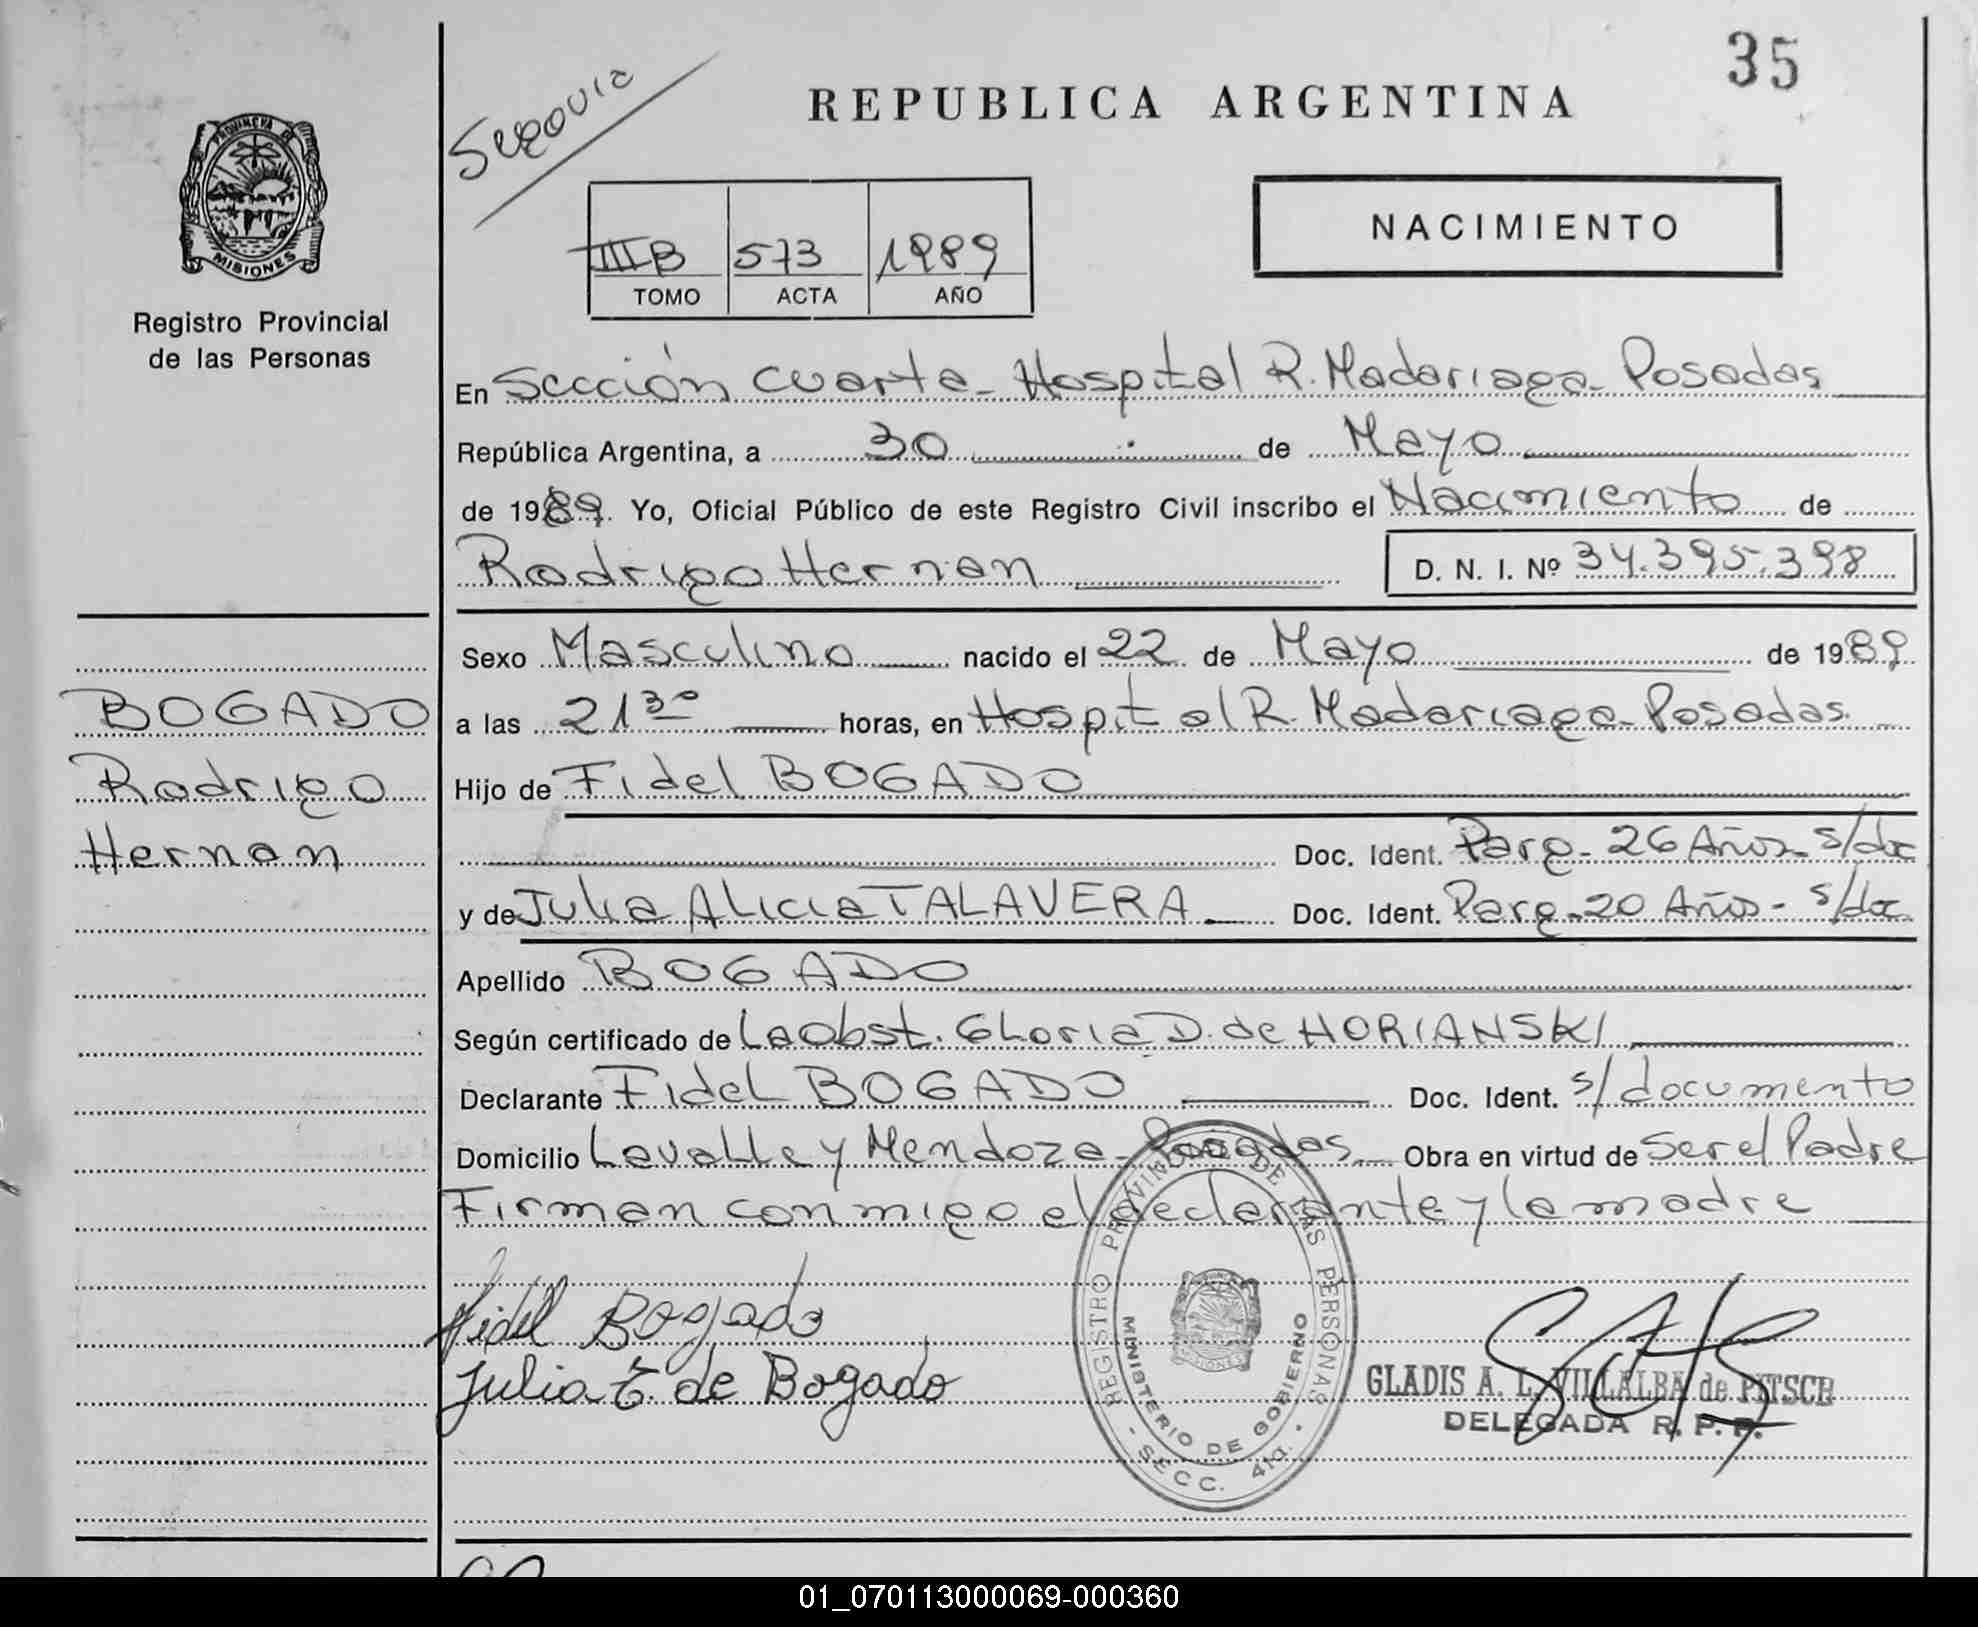 35
REPUBLICA ARGENTINA
NACIMIENTO
PROVINCIA DE
MISIONES
Registro Provincial
de las Personas
IIIB 573 1989
TOMO ACTA AÑO
En Sección Cuarta - Hospital R. Madariaga - Posadas
República Argentina, a 30 de Mayo
de 1989. Yo, Oficial Público de este Registro Civil inscribo el Nacimiento de
Rodrigo Hernan D. N. I. Nº 34.395.398
Sexo Masculino nacido el 22 de Mayo de 1989
a las 21 30 horas, en Hospital R. Madariaga - Posadas
Hijo de Fidel BOGADO
Doc. Ident. Parg - 26 Años - s/doc
y de Julia Alicia TALAVERA Doc. Ident. Parg - 20 Años - s/doc
Apellido BOGADO
Según certificado de La Obst. Gloria D. de HORIANSKI
Declarante Fidel BOGADO Doc. Ident. s/documento
Domicilio Lavalle y Mendoza - Posadas Obra en virtud de Ser el Padre
Firman conmigo el declarante y la madre
BOGADO
Rodrigo
Hernan
Fidel Bogado
Julia T. de Bogado
REGISTRO PROVINCIAL DE LAS PERSONAS
MINISTERIO DE GOBIERNO
MISIONES
- SECC. 4ta. -
GLADIS A. L. VILLALBA de PITSCH
DELEGADA R. P. P.
01_070113000069-000360